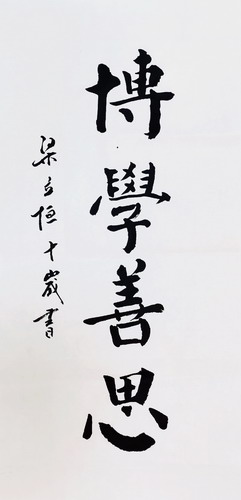 博學善思
梁立恒十歲書